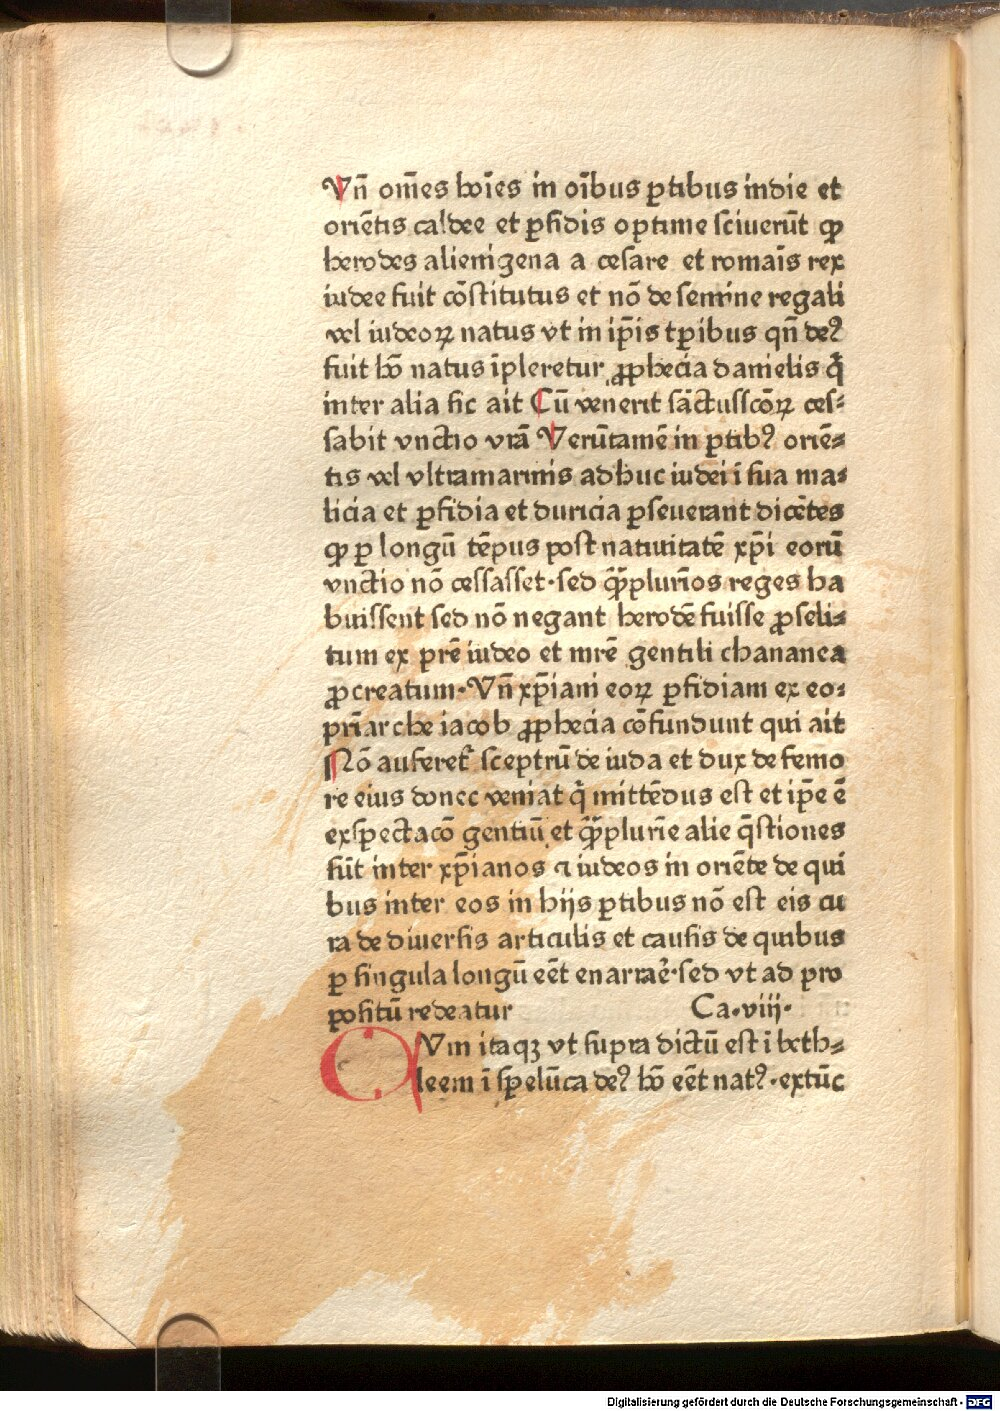 Vn̄ om̄es hoīes in oībus ꝑtibus indie et
oriētis caldee et ꝑfidis optime sciuerūt ꝙ
herodes alienigena a cesare et romaīs rex
iudee fuit cōstitutus et nō de semine regali
vel iudeoꝝ natus vt in ip̄is tꝑibus qn̄ deꝰ
fuit hō natus īpleretur ꝓphecia danielis q̄
inter alia sic ait Cū venerit sāctusscōꝝ ces⸗
sabit vnctio vrā Verūtamē in ꝑtibꝰ oriē⸗
tis vel vltramarinis adhuc iudei ī sua ma⸗
licia et ꝑfidia et duricia ꝑseuerant dicētes
ꝙ ꝑ longū tēpus post natiuitatē xp̄i eorū
vnctio nō cessasset·sed ꝙ̄plurīos reges ha
buissent sed nō negant herodē fuisse ꝓseli⸗
tum ex pr̄e iudeo et mr̄e gentili chananea
ꝓcreatum·Vn̄ xp̄iani eoꝝ ꝑfidiam ex eo⸗
pr̄iarche iacob ꝓphecia cōfundunt qui ait
Nō auferet᷑ sceptrū de iuda et dux de femo
re eius donec veniat q̄ mittēdus est et ip̄e ē
exspectacō gentiū et ꝙ̄plurīe alie q̄stiones
fūt inter xp̄ianos ⁊ iudeos in oriēte de qui
bus inter eos in hijs ꝑtibus nō est eis cu
ra de diuersis articulis et causis de quibus
ꝑ singula longū eēt enarrar̄e·sed vt ad pro
positū redeatur Ca·viij·
QVm itaqꝫ vt supra dictū est ī beth⸗
leem ī spelūca deꝰ hō eēt natꝰ·extūc
Digitalisierung gefördert durch die Deutsche Forschungsgemeinschaft - DFG